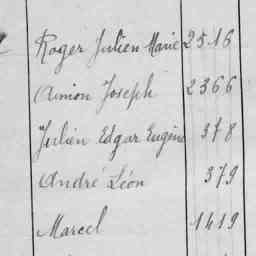 Roger Julien Marie 2516
Simon Joseph 2366
Julien Edgar Eugène 378
André Léon 379
Marcel 1419